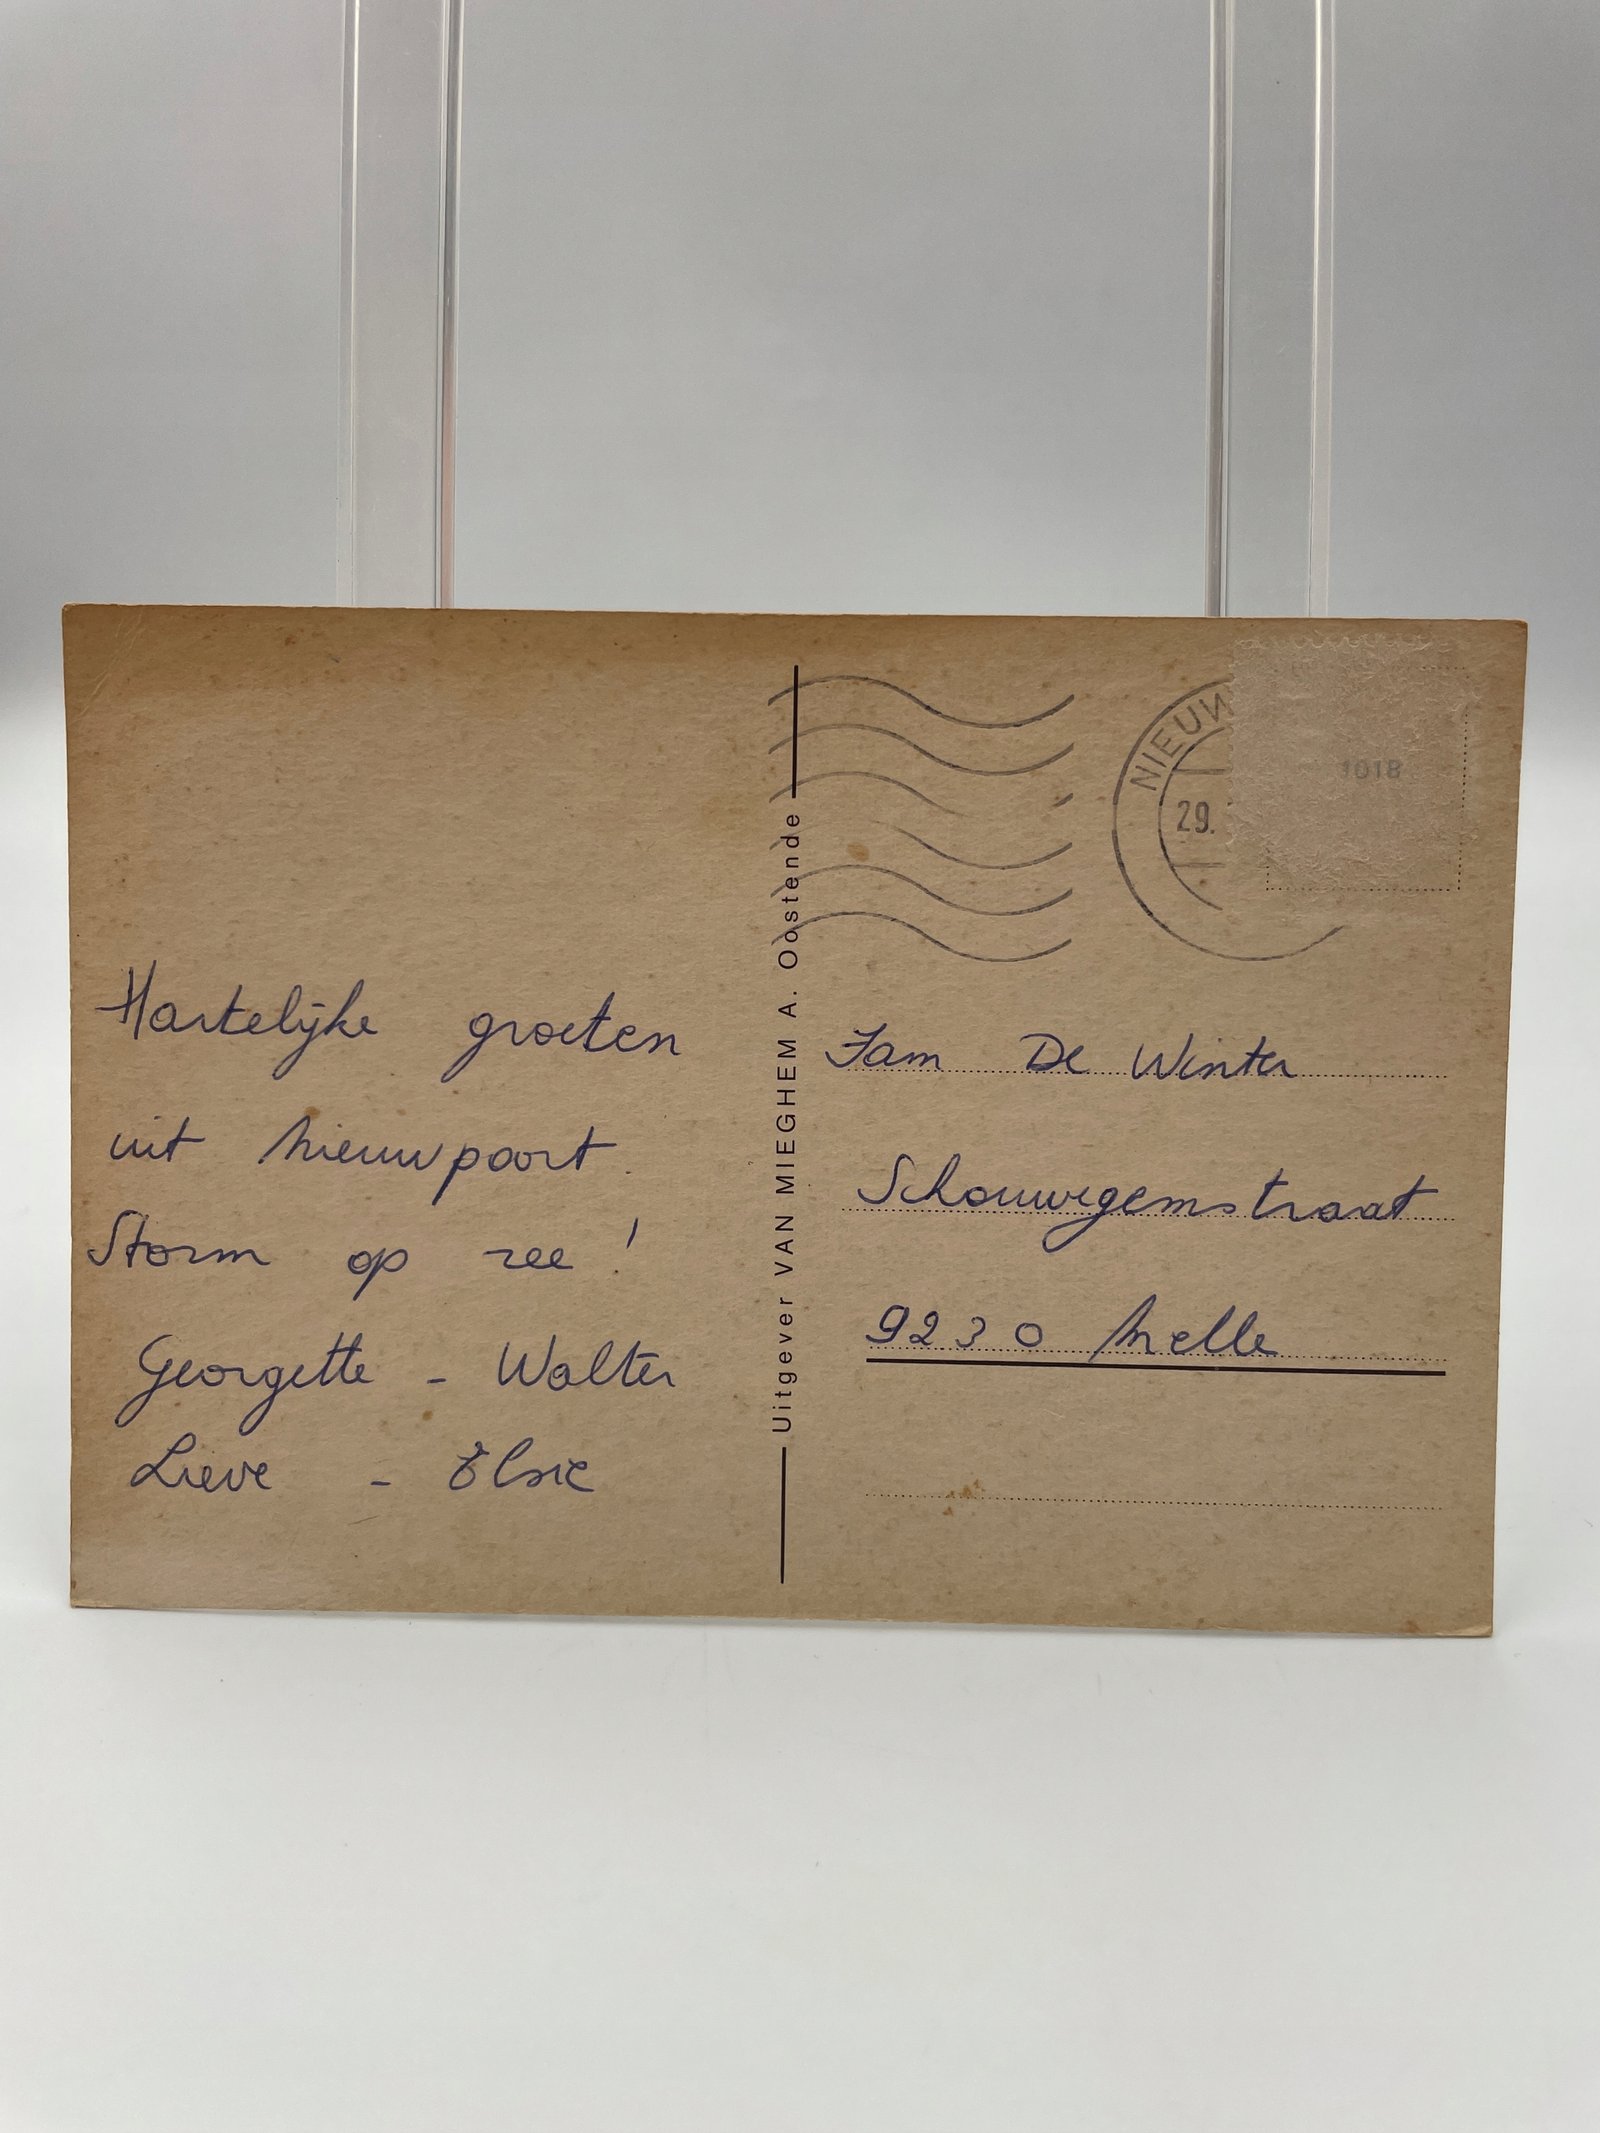 Hartelijke groeten
uit Nieuwpoort.
Storm op zee!
Georgette - Walter
Lieve - Elsie
Uitgever VAN MIEGHEM A. Oostende
NIEUW
29.
1018
Fam De Winter
Schouwegemstraat
9230 Melle